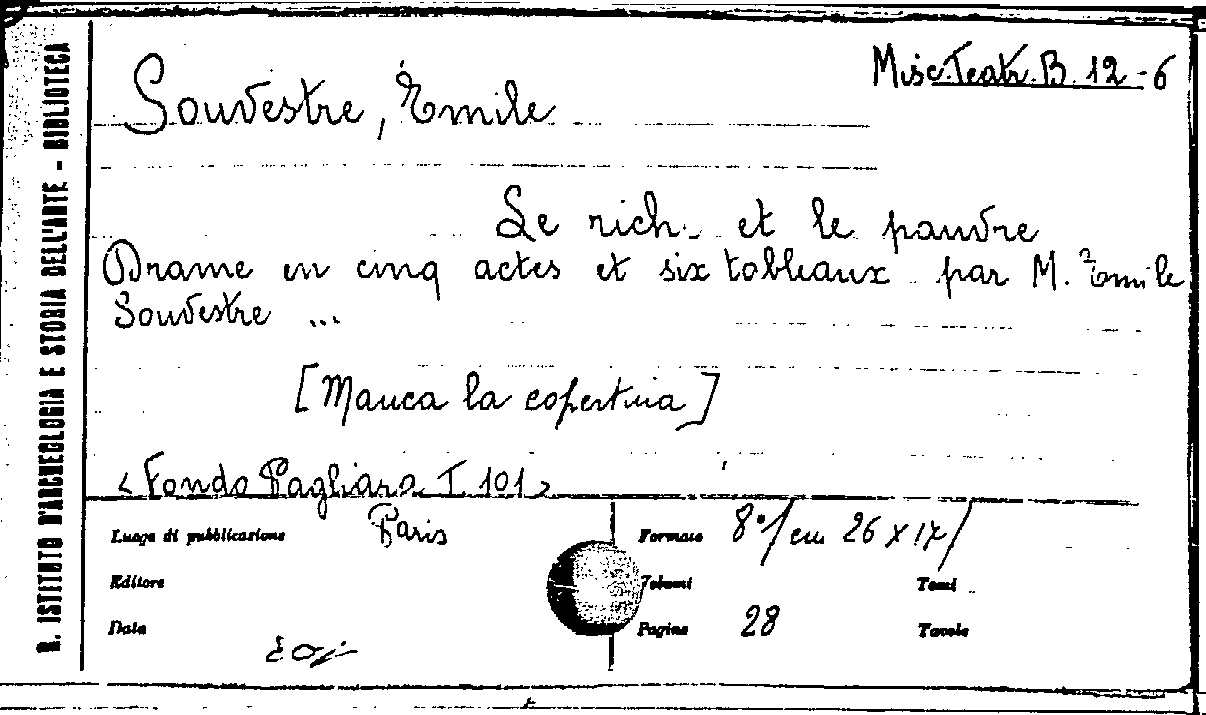 Misc. Teatr. B. 12-6
Souvestre, Emile
Le rich. et le pauvre
Drame en cinq actes et six tableaux par M. Emile
Souvestre ...
[Manca la copertina]
<Fondo Pagliara I 101>
Luogo di pubblicazione Paris
Formato 8°/cm 26 x 17/
Editore
Volumi
Tomi
Data
Pagine 28
Tavole
R. ISTITUTO D'ARCHEOLOGIA E STORIA DELL'ARTE - BIBLIOTECA